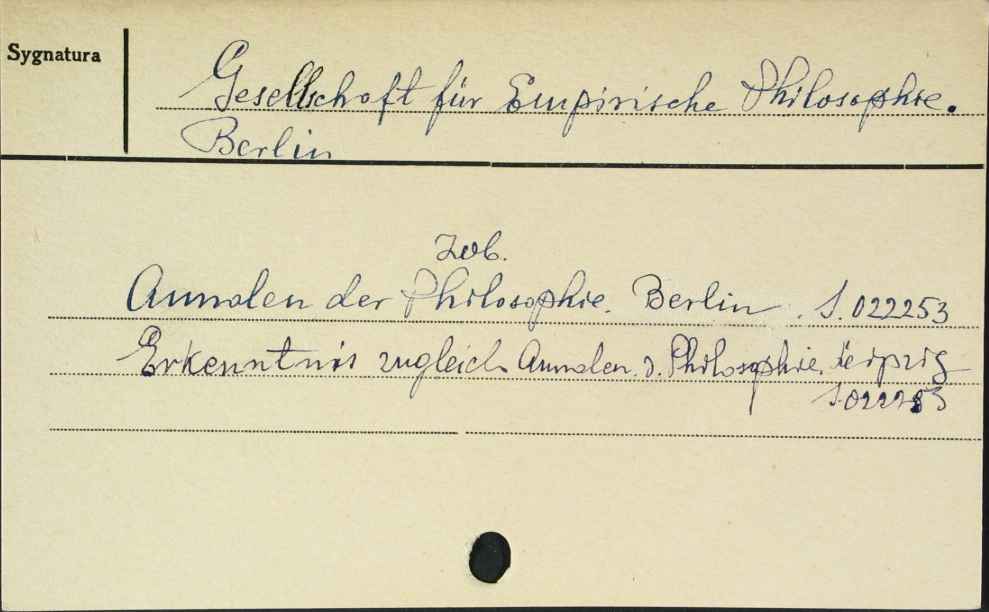 Sygnatura
Gesellschaft für Empirische Philosophie.
Berlin
Zob.
Annalen der Philosophie. Berlin. S. 022253
Erkenntnis zugleich Annalen d. Philosophie. Leipzig
S.022253